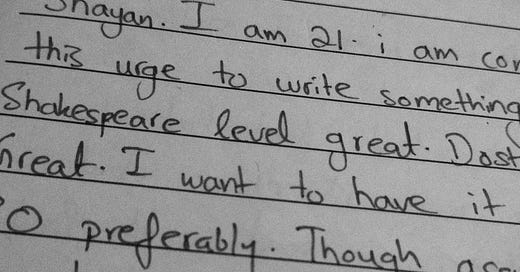 Shayan. I am 21. i am con
this urge to write something
Shakespeare level great. Dost
Great. I want to have it
0 preferably. Though